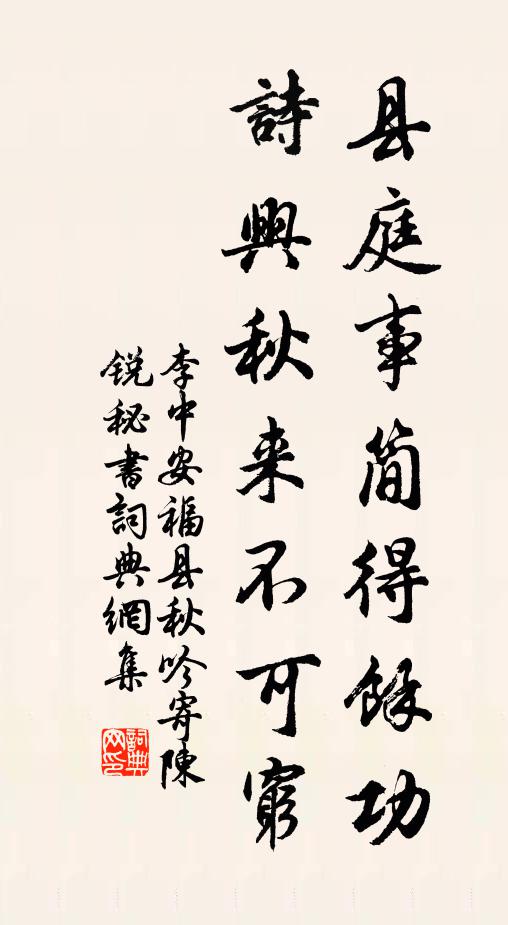 县庭事简得餘功
詩興秋来不可窮
李中安福县秋吟寄陳
锐秘書詞典網集
詞典网印